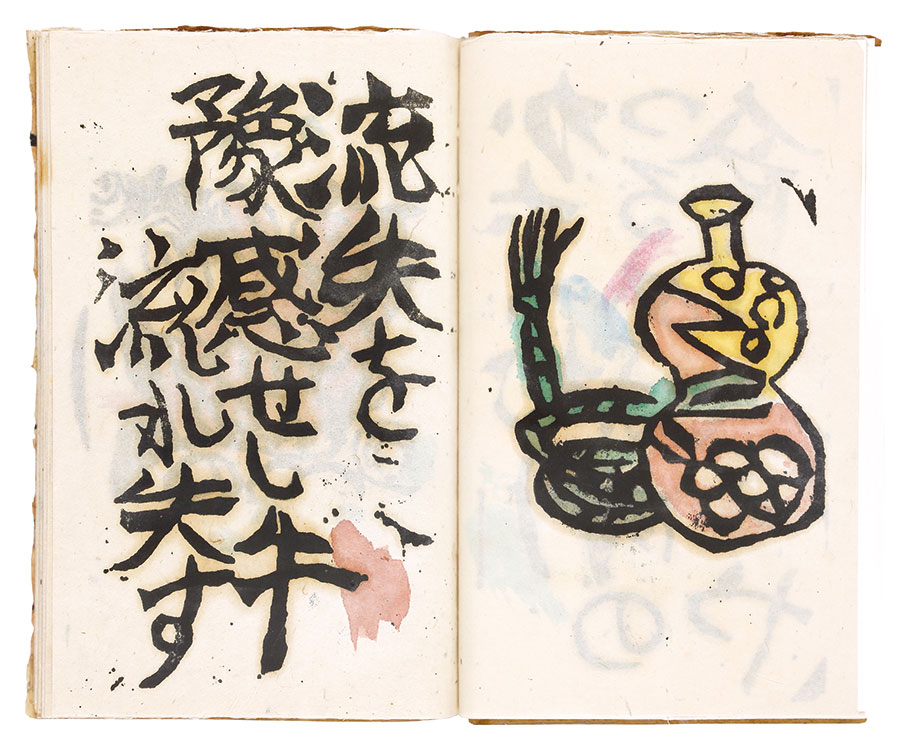 流失を
豫感せし牛
流れ失す